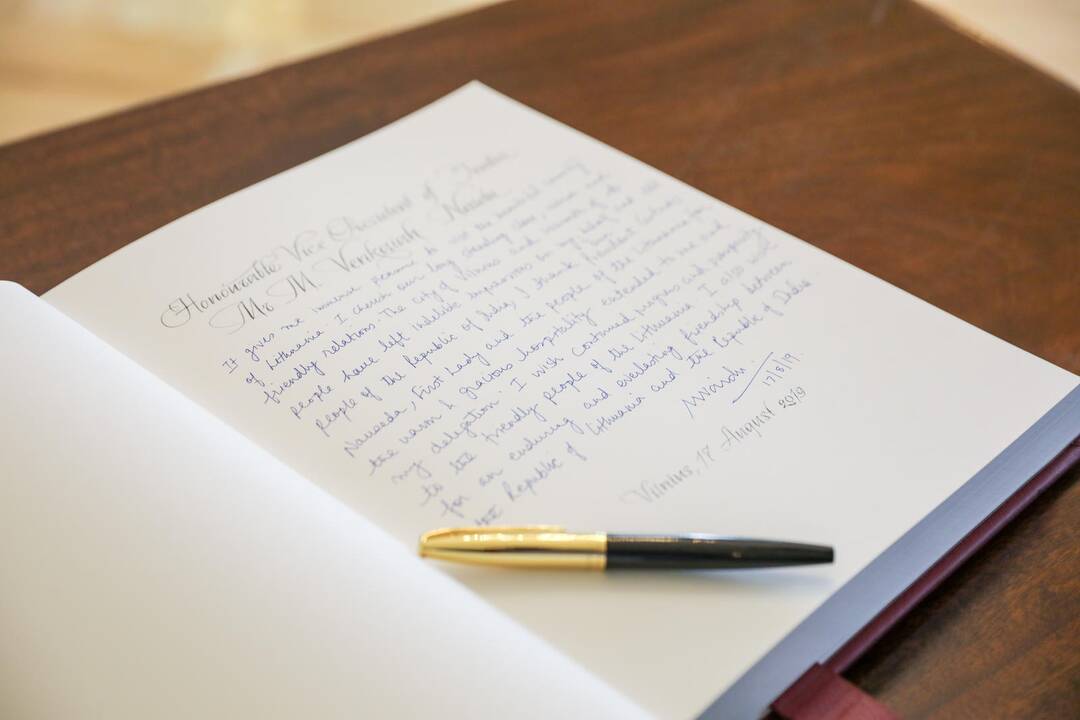 Honourable Vice President of India
Mr M. Venkaiah Naidu
It gives me immense pleasure to visit the beautiful country
of Lithuania. I cherish our long standing close, warm and
friendly relations. The city of Vilnius and warmth of the
people have left indelible impressions on my heart and the
people of the Republic of India. I thank President Gitanas
Nauseda, First Lady and the people of the Lithuania for
the warm & gracious hospitality extended to me and
my delegation. I wish continued progress and prosperity
to the friendly people of the Lithuania. I also
for an enduring and everlasting friendship between
the Republic of Lithuania and the Republic of India
17/8/19.
Vilnius, 17 August 2019